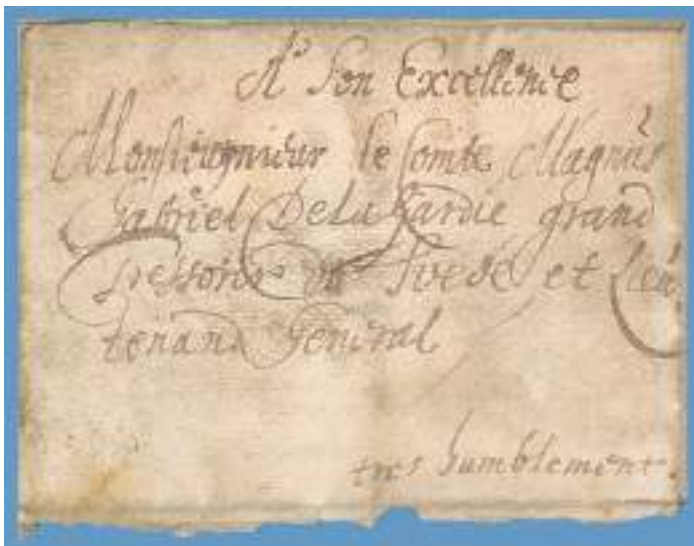 A Son Excellence
Monseigneur le Comte Magnus
Gabriel De La Gardie grand
Tressorier de Svede et Lieu
tenand General
tres humblement